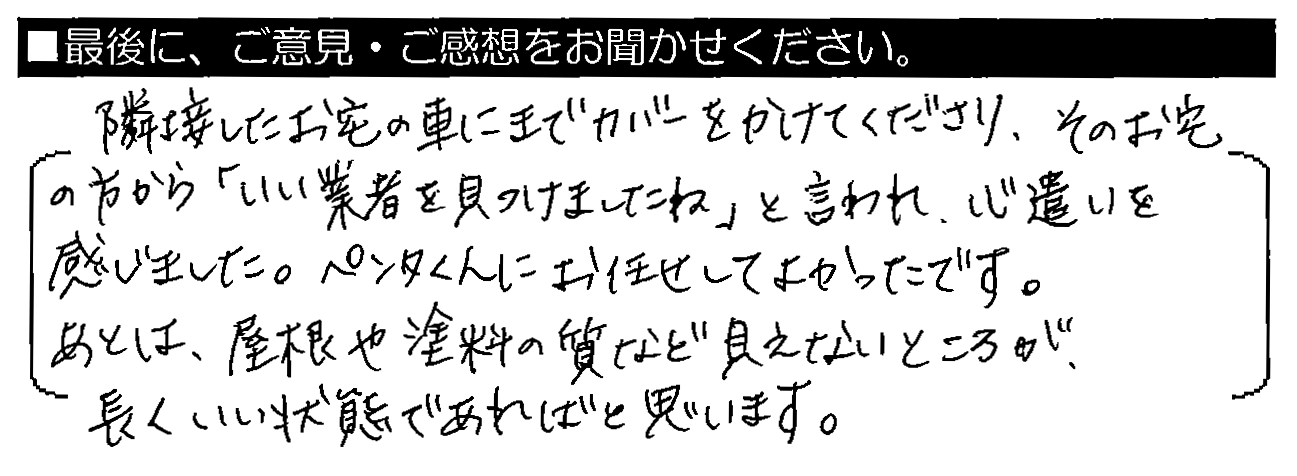 ■最後に、ご意見・ご感想をお聞かせください。
隣接したお宅の車にまでカバーをかけてくださり、そのお宅
の方から「いい業者を見つけましたね」と言われ、心遣いを
感じました。ペンタくんにお任せしてよかったです。
あとは、屋根や塗料の質など見えないところが、
長くいい状態であればと思います。